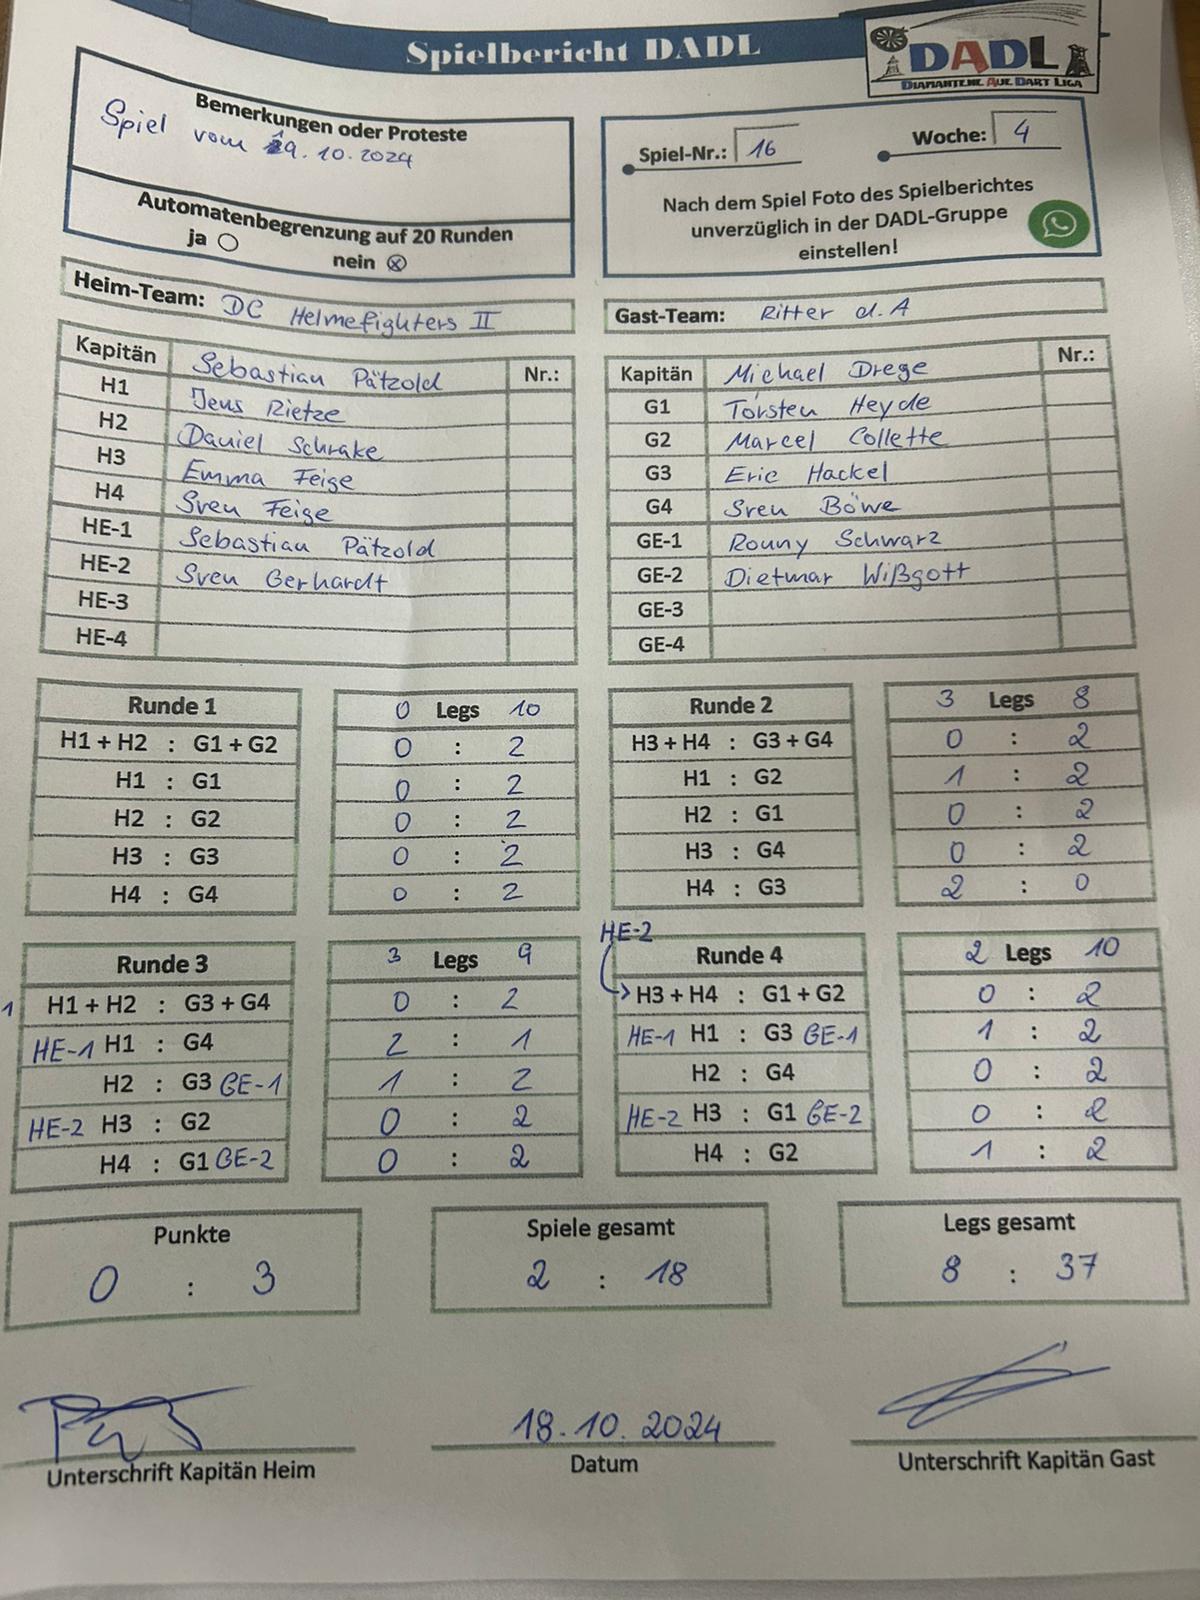 Spielbericht DADL
DADL
DIAMANTENE AUE DART LIGA
Bemerkungen oder Proteste
Spiel vom 19.10.2024
Automatenbegrenzung auf 20 Runden
ja ○
nein ⊗
Spiel-Nr.: 16
Woche: 4
Nach dem Spiel Foto des Spielberichtes
unverzüglich in der DADL-Gruppe
einstellen!
Heim-Team: DC Helmefighters II
Kapitän Sebastian Pätzold Nr.:
H1 Jens Rietze
H2 Daniel Schrake
H3 Emma Feige
H4 Sven Feige
HE-1 Sebastian Pätzold
HE-2 Sven Gerhardt
HE-3
HE-4
Gast-Team: Ritter d. A
Kapitän Michael Drege Nr.:
G1 Torsten Heyde
G2 Marcel Collette
G3 Eric Hackel
G4 Sven Böwe
GE-1 Ronny Schwarz
GE-2 Dietmar Wißgott
GE-3
GE-4
Runde 1 0 Legs 10
H1 + H2 : G1 + G2 0 : 2
H1 : G1 0 : 2
H2 : G2 0 : 2
H3 : G3 0 : 2
H4 : G4 0 : 2
Runde 2 3 Legs 8
H3 + H4 : G3 + G4 0 : 2
H1 : G2 1 : 2
H2 : G1 0 : 2
H3 : G4 0 : 2
H4 : G3 2 : 0
Runde 3 3 Legs 9
1 H1 + H2 : G3 + G4 0 : 2
HE-1 H1 : G4 2 : 1
H2 : G3 GE-1 1 : 2
HE-2 H3 : G2 0 : 2
H4 : G1 GE-2 0 : 2
HE-2
Runde 4 2 Legs 10
H3 + H4 : G1 + G2 0 : 2
HE-1 H1 : G3 GE-1 1 : 2
H2 : G4 0 : 2
HE-2 H3 : G1 GE-2 0 : 2
H4 : G2 1 : 2
Punkte
0 : 3
Spiele gesamt
2 : 18
Legs gesamt
8 : 37
Unterschrift Kapitän Heim
18.10.2024
Datum
Unterschrift Kapitän Gast